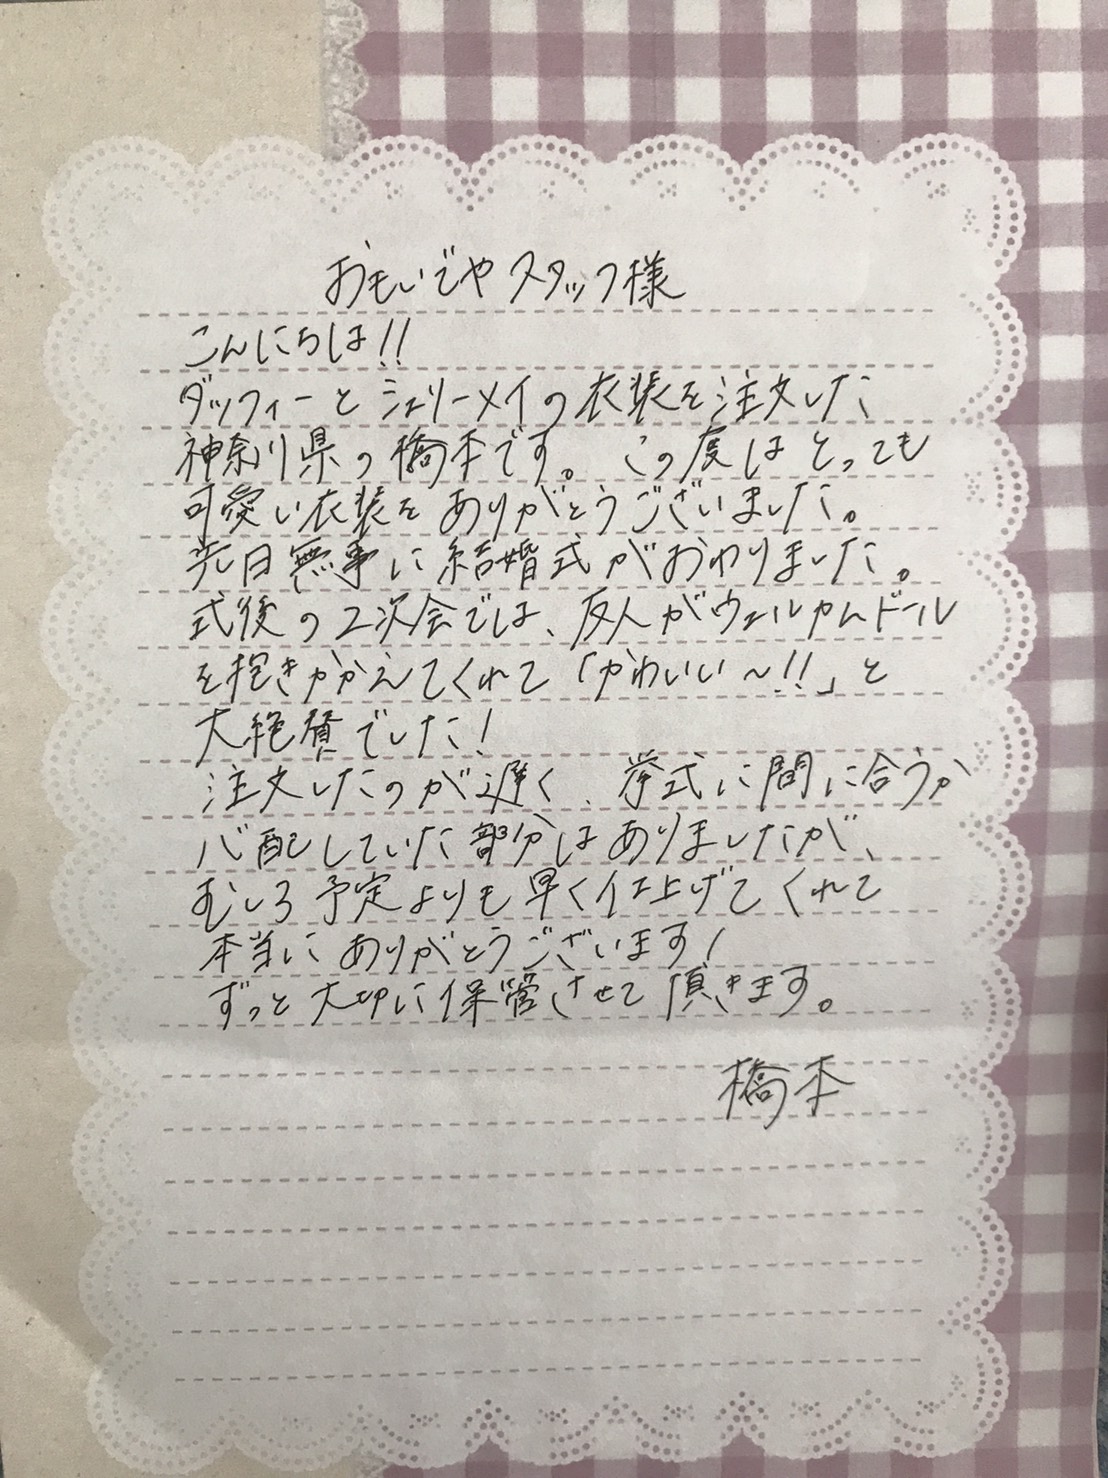 おもいでやスタッフ様
こんにちは!!
ダッフィーとシェリーメイの衣装を注文した
神奈川県の橋本です。この度はとっても
可愛い衣装をありがとうございました。
先日無事に結婚式がおわりました。
式後の2次会では、友人がウェルカムドール
を抱きかかえてくれて「かわいい~!!」と
大絶賛でした!
注文したのが遅く、挙式に間に合うか
心配していた部分はありましたが、
むしろ予定よりも早く仕上げてくれて
本当にありがとうございます!
ずっと大切に保管させて頂きます。
橋本